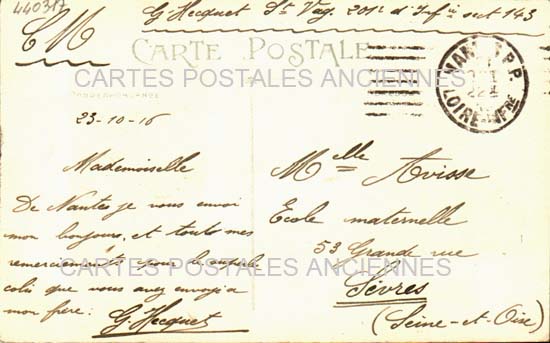 440317
G. Hecquet St Vag. 201e d'Infie sect 143
CM
CARTE POSTALE
CARTES POSTALES ANCIENNES
CORRESPONDANCE
NANTES P.P
22
LOIRE-INFRE
23-10-16
Mademoiselle
De Nantes je vous envoi
mon bonjour, et toute mes
remerciements pour le
colis que vous avez envoyé a
mon frère:
G. Hecquet
Melle Avisse
École maternelle
53 Grande rue
Sèvres
(Seine-et-Oise)
CARTES POSTALES ANCIENNES